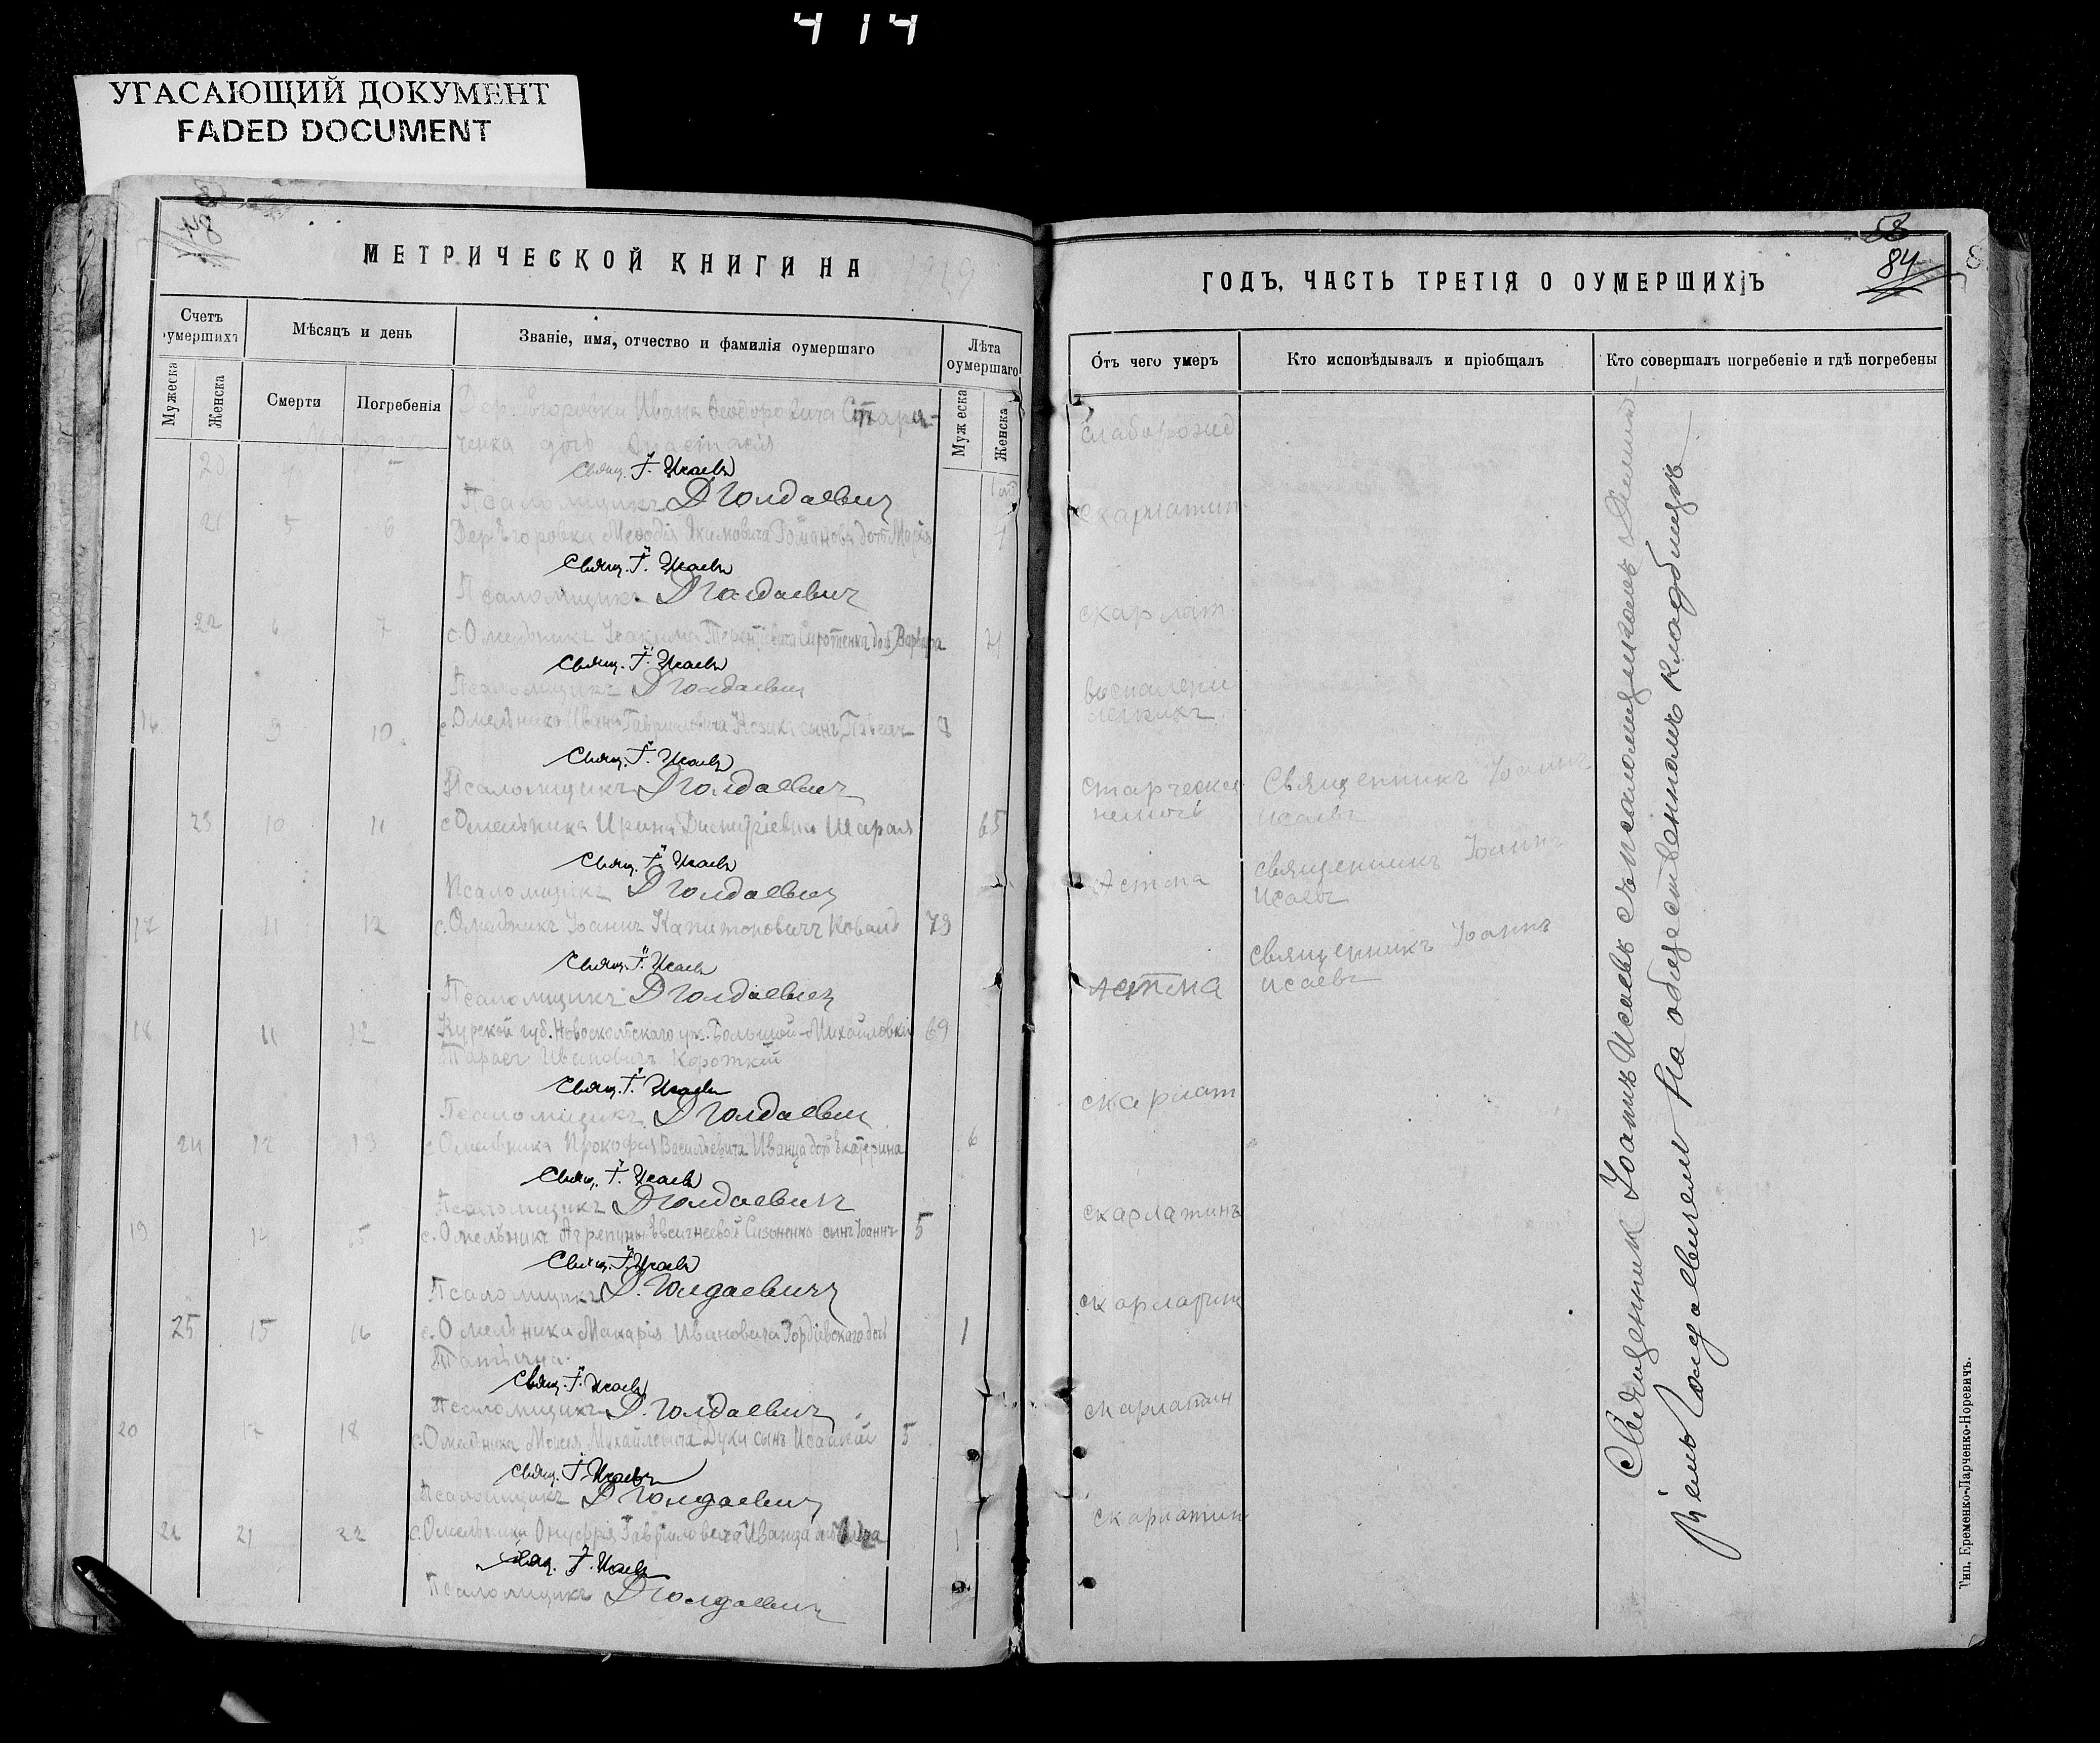 414
УГАСАЮЩИЙ ДОКУМЕНТ
FADED DOCUMENT
МЕТРИЧЕСКОЙ КНИГИ НА 1919
Счетъ оумершихъ
Мѣсяцъ и день
Званіе, имя, отчество и фамилія оумершаго
Лѣта оумершаго
Мужеска
Женска
Смерти
Погребенія
Мужеска
Женска
Дер. Егоровки Ивана Ѳеодоровича Стари-
ченка дочь Анастасія
20 4
Свящ. Ї. Исаевъ
Псаломщикъ Д Голдаевич
21 5 6 Дер Егоровки Меѳодія Якимовича Романова дочь Марія 4
Свящ. Ї. Исаевъ
Псаломщикъ Д Голдаевич
22 6 7 с. Омельника Терентіевича Сиротенка дочь Варвара
Свящ. Ї. Исаевъ
Псаломщикъ Д Голдаевич
16 9 10 с Омельника Ивана Гавриловича сынъ 8
Свящ. Ї. Исаевъ
Псаломщикъ Д Голдаевич
23 10 11 с Омельника Ирина Димитріевна 65
Свящ. Ї. Исаевъ
Псаломщикъ Д Голдаевич
17 11 12 с. Омельника Іоаннъ Капитоновичъ Коваль 73
Свящ. Ї. Исаевъ
Псаломщикъ Д Голдаевич
18 11 12 Курской губ. Новооскольскаго уѣз. Большой-Михайловки 69
Тарасъ Ивановичъ Короткій
Свящ. Ї. Исаевъ
Псаломщикъ Д Голдаевич
24 12 13 с Омельника Прокофія Васильевича Иванца дочь Екатерина 6
Свящ. Ї. Исаевъ
Псаломщикъ Д Голдаевич
19 14 15 с. Омельника Агрепины Евсигнеевой Сизоненко сынъ Іоаннъ 5
Свящ. Ї. Исаевъ
Псаломщикъ Д. Голдаевичъ
25 15 16 с. Омельника Макарія Ивановича Гордіевскаго дочь 1
Татьяна.
Свящ. Ї. Исаевъ
Псаломщикъ Д. Голдаевичъ
20 17 18 с. Омельника Моисея Михайловича Дуки сынъ 5
Свящ. Ї. Исаевъ
Псаломщикъ Д Голдаевич
21 21 22 с. Омельника Онуфрія Гавриловича Иванца
Свящ. Ї. Исаевъ
Псаломщикъ Д Голдаевич
53
84
ГОДЪ, ЧАСТЬ ТРЕТІЯ О ОУМЕРШИХЪ
Отъ чего умеръ
Кто исповѣдывалъ и пріобщалъ
Кто совершалъ погребеніе и гдѣ погребены
слаборожд
скарлатин
скарлат
воспаленіе
легкихъ
старческая немочь
Священникъ Іоаннъ
Исаевъ
Астма
Священникъ Іоаннъ
Исаевъ
Астма
Священникъ Іоаннъ
Исаевъ
скарлат
скарлатинъ
скарлатин
скарлатин
скарлатин
Священник Іоаннъ Исаевъ съ псаломщикомъ
Голдаевичемъ На общественномъ кладбищѣ
Тип. Еременко-Ларченко-Норевичъ.